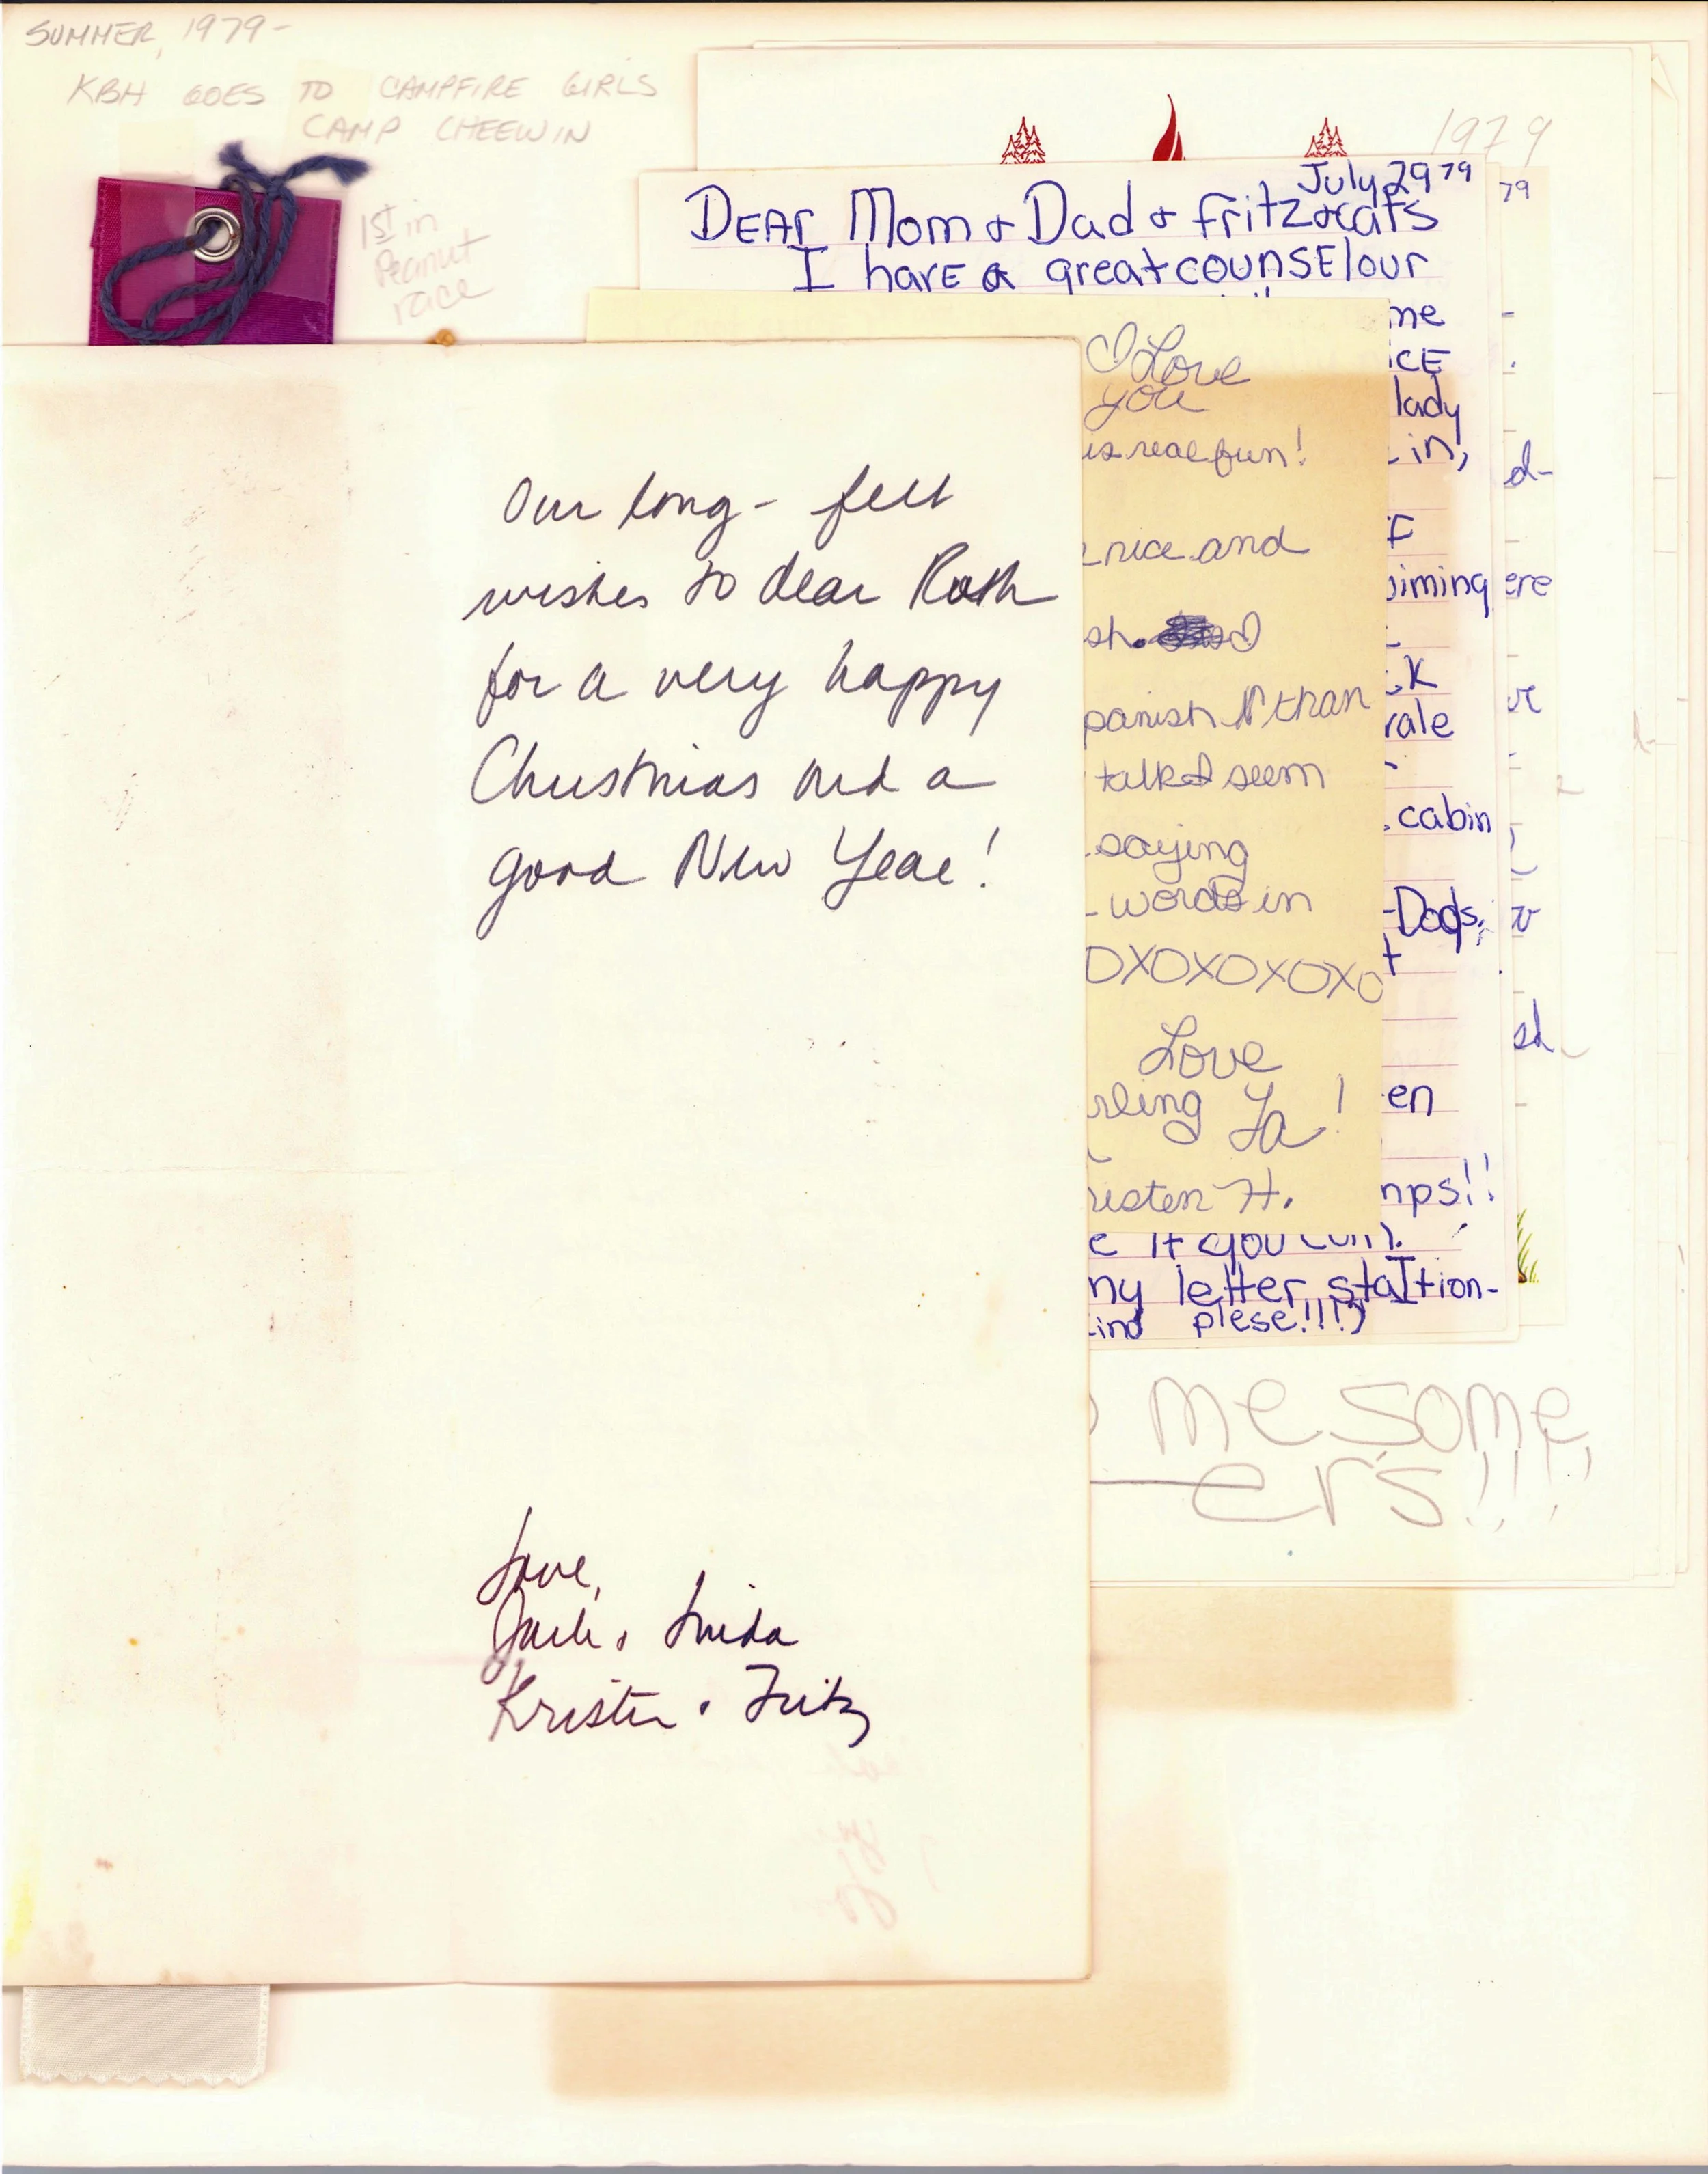 SUMMER, 1979-
KBH GOES TO CAMPFIRE GIRLS
CAMP CHEEWIN
1st in
Peanut
race
1979
July 29 79
DEAr Mom & Dad & fritz & cats
I havE a great counsElour
me
ICE
lady
in,
F
iming
K
rale
cabin
Dogs,
t
en
mps!!
e If you can).
my letter staItion-
kind plese!!!!)
79
d-
ere
ve
w
sh
I Love
you
is real fun!
nice and
sh.
panish N than
talk I seem
saying
words in
OXOXOXOXO
Love
rling Ya!
risten H.
Our long-felt
wishes to dear Ruth
for a very happy
Christmas and a
good New Year!
Love,
Jack & Linda
Kristen & Fritz
me some
ers!!!!